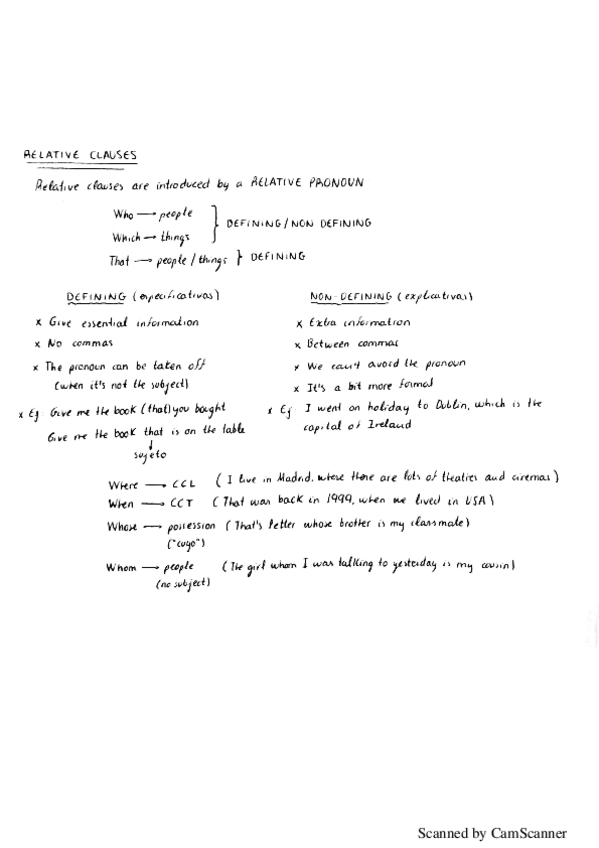 RELATIVE CLAUSES
Relative clauses are introduced by a RELATIVE PRONOUN
Who → people
Which → things
} DEFINING / NON DEFINING
That → people / things } DEFINING
DEFINING (especificativas)
x Give essential information
x No commas
x The pronoun can be taken off
(when it's not the subject)
x Eg Give me the book (that) you bought
Give me the book that is on the table
↓
sujeto
NON-DEFINING (explicativas)
x Extra information
x Between commas
x We can't avoid the pronoun
x It's a bit more formal
x Ej I went on holiday to Dublin, which is the
capital of Ireland
Where → CCL (I live in Madrid, where there are lots of theatres and cinemas)
When → CCT (That was back in 1999, when we lived in USA)
Whose → possession (That's Peter whose brother is my classmate)
("cuyo")
Whom → people (The girl whom I was talking to yesterday is my cousin)
(no subject)
Scanned by CamScanner